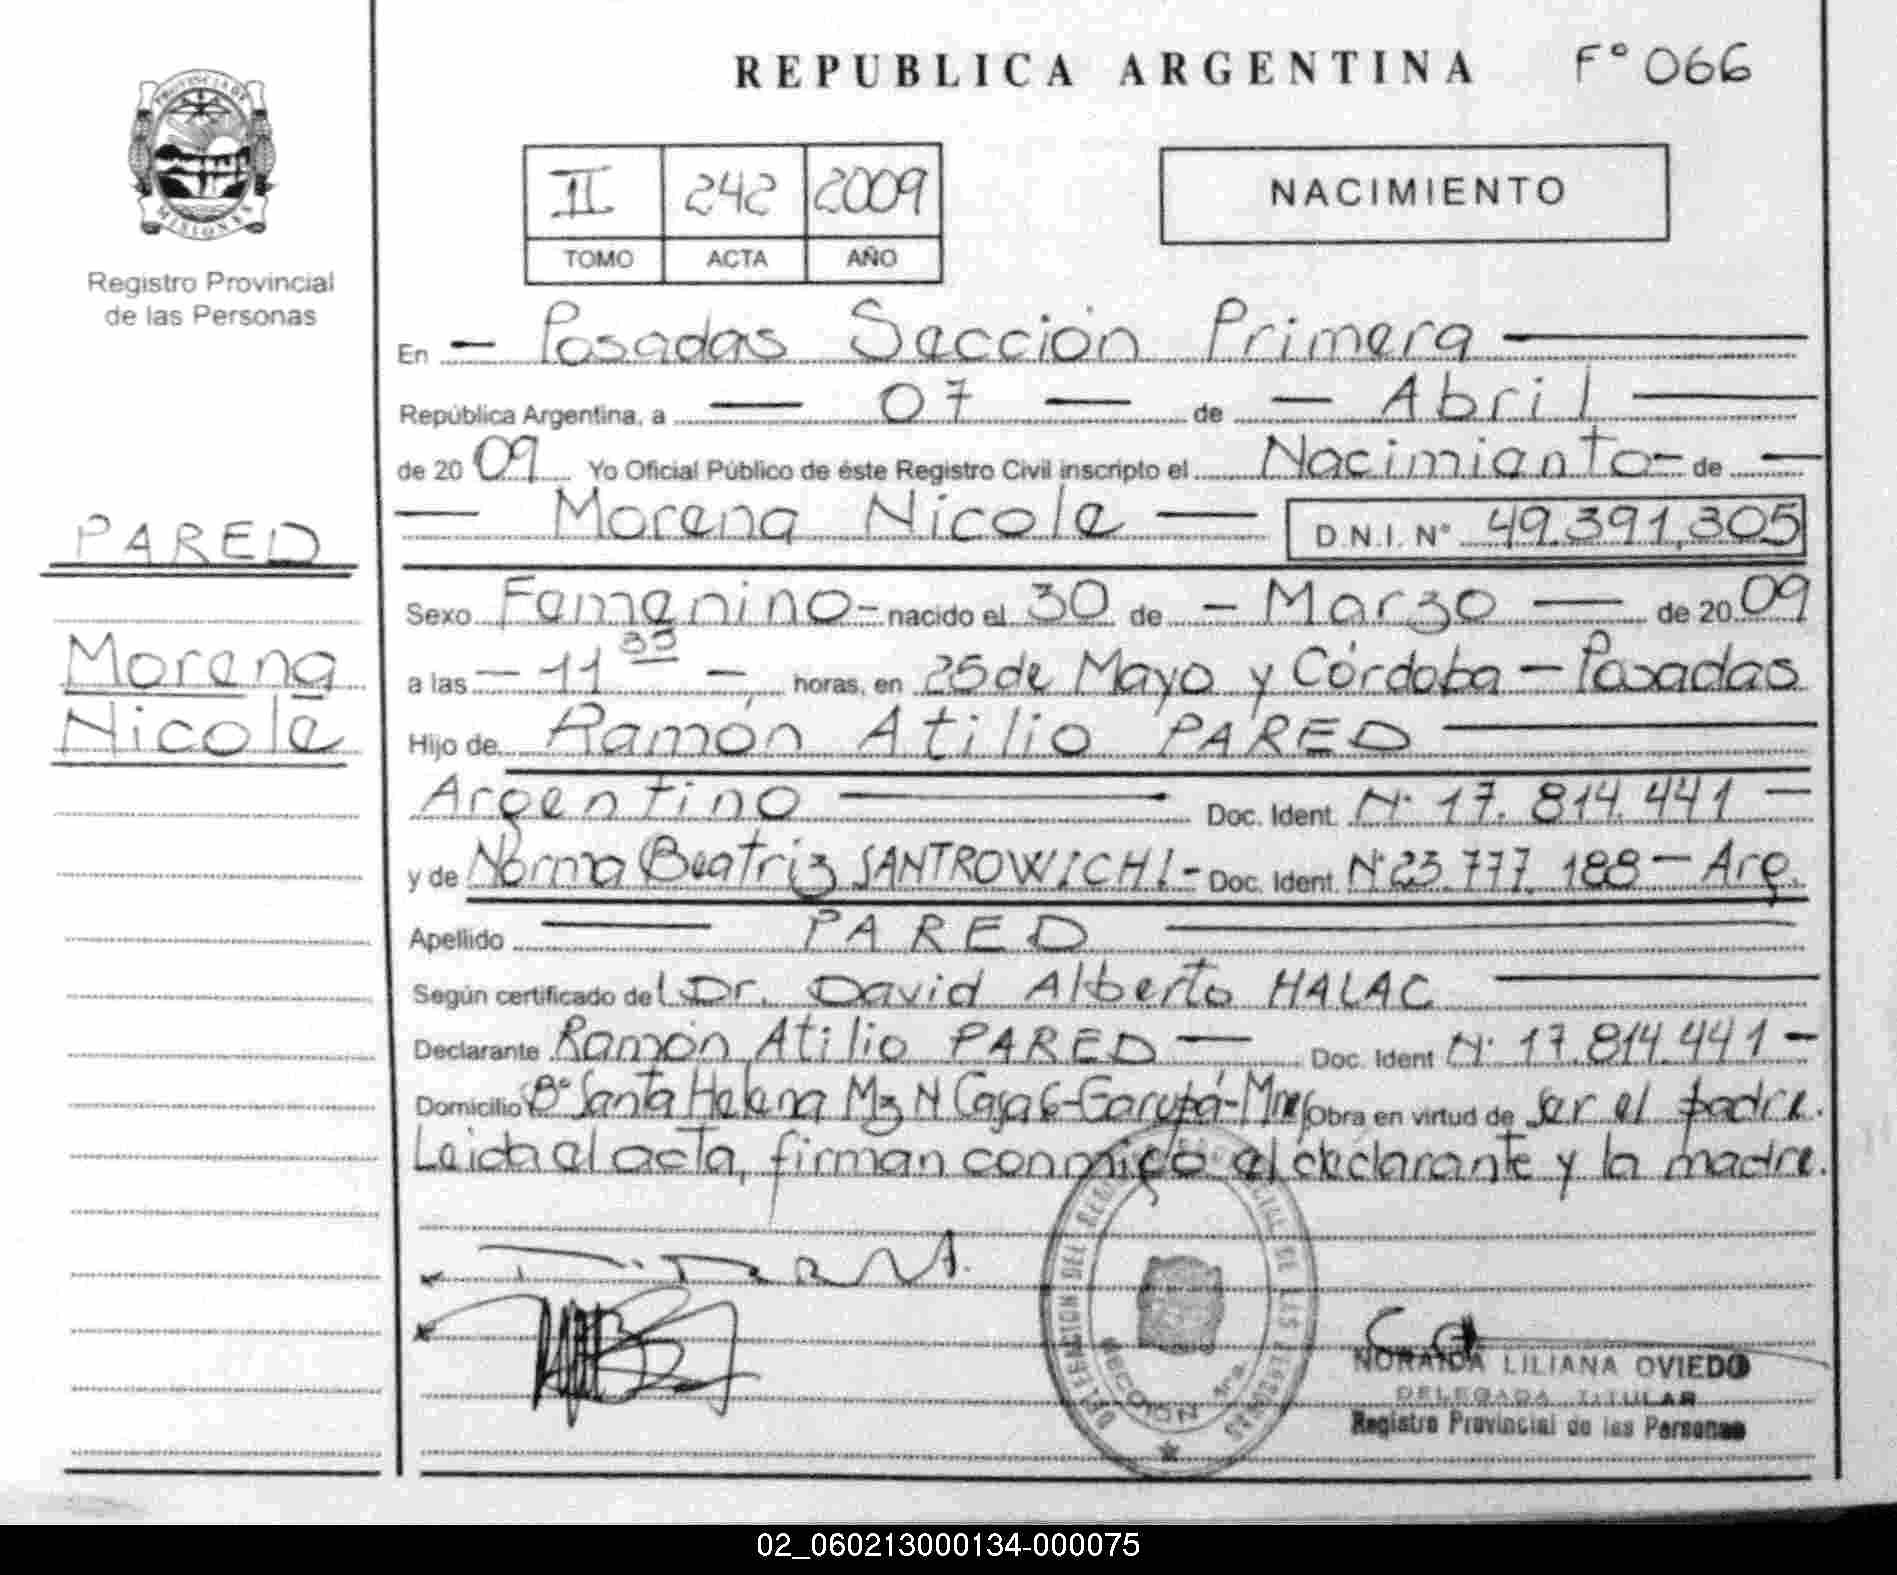 REPUBLICA ARGENTINA Fº 066
PROVINCIA DE
MISIONES
Registro Provincial
de las Personas
II 242 2009
TOMO ACTA AÑO
NACIMIENTO
En - Posadas Sección Primera
República Argentina, a 07 de - Abril
de 2009 Yo Oficial Público de éste Registro Civil inscripto el Nacimiento - de -
Morena Nicole D.N.I. Nº 49.391.305
PARED
Morena
Nicole
Sexo Femenino - nacido el 30 de - Marzo - de 2009
a las - 11 35 -, horas, en 25 de Mayo y Córdoba - Posadas
Hijo de Ramón Atilio PARED
Argentino Doc. Ident. Nº 17.814.441 -
y de Norma Beatriz SANTROWICHI - Doc. Ident. Nº 23.777.188 - Arg.
Apellido PARED
Según certificado del Dr. David Alberto HALAC
Declarante Ramón Atilio PARED - Doc. Ident Nº 17.814.441 -
Domicilio Bº Santa Helena Mz N Casa 6 - Garupá - Mnes Obra en virtud de ser el padre.
Leida el acta, firman conmigo el declarante y la madre.
DELEGACION DEL REGISTRO PROVINCIAL DE LAS PERSONAS
SECCION 1ra.
NORAIDA LILIANA OVIEDO
DELEGADA TITULAR
Registro Provincial de las Personas
02_060213000134-000075